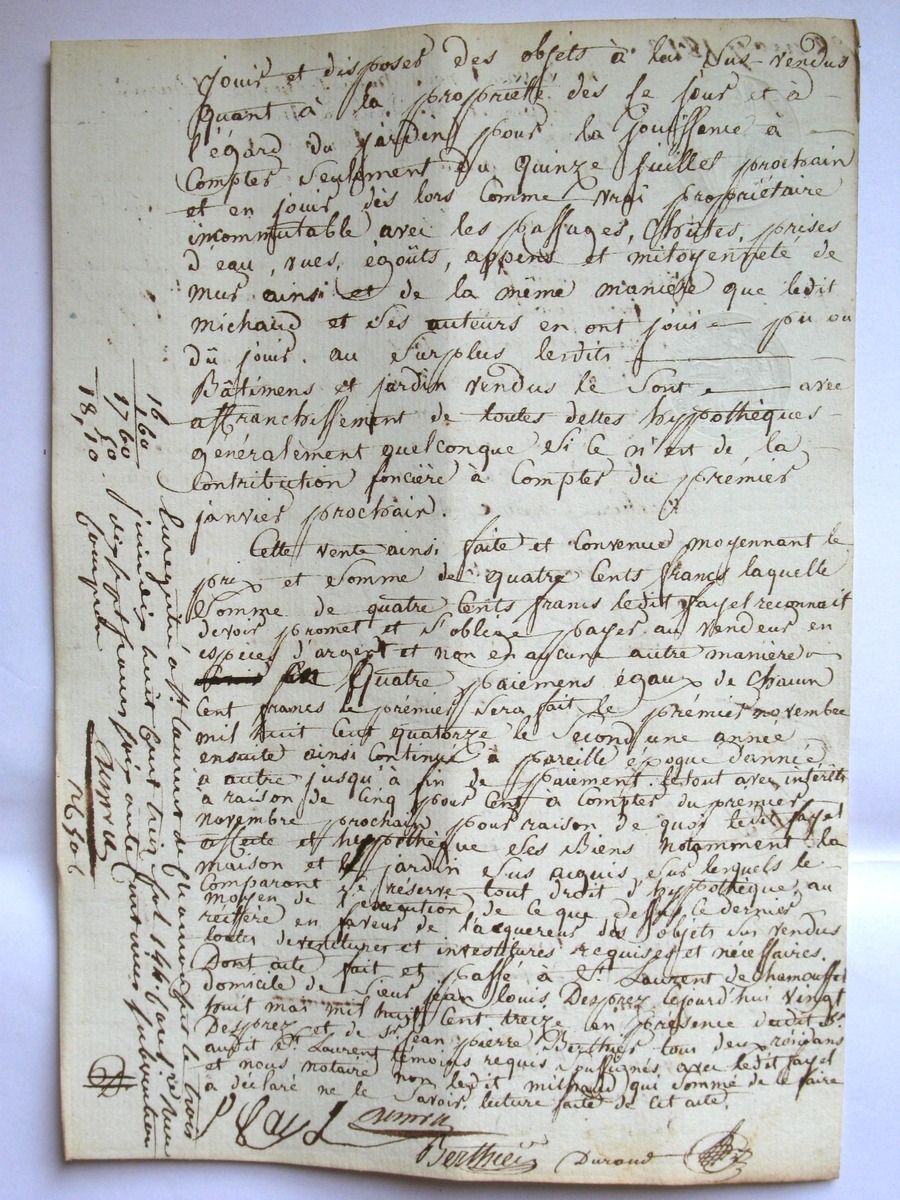 jouir et disposer des objets à lui sus-vendus
quant à la propriété dès ce jour et à
l'égard du jardin pour la jouissance à
compter seulement du quinze juillet prochain
et en jouir dès lors comme vrai propriétaire
incommutable avec les passages, chutes, prises
d'eau, vues, égoûts, appens et mitoyenneté de
mur ainsi et de la même manière que ledit
michaud et ses auteurs en ont joui pu ou
dû jouir. au surplus lesdits
Bâtimens et jardin vendus le sont avec
affranchissement de toutes dettes hyppothèques
généralement quelconque si ce n'est de la
Contribution foncière à compter du premier
janvier prochain.
Cette vente ainsi faite et convenue moyennant le
prix et somme de quatre cents francs laquelle
somme de quatre cents francs ledit fayet reconnait
devoir promet et s'oblige payer au vendeur en
espèces d'argent et non en aucune autre manière
en quatre paiemens égaux de chacun
cent francs le prémier sera fait le prémier novembre
mil huit cent quatorze le second une année
ensuite ainsi continué à pareille époque d'année
à autre jusqu'à fin de paiement. le tout avec intérêts
à raison de cinq pour cent à compter du premier
novembre prochain pour raison de quoi ledit fayet
affecte et hyppothèque ses Biens notamment la
maison et le jardin sus aiquis, sur lesquels le
comparant se réserve tout droit d'hyppothèque, au
moyen de l'exécution de ce que dessus ce dernier
en faveur de l'acquereur des objets sus vendus
toutes devestitures et investitures requises et nécessaires.
Dont acte fait et passé à St. Laurent de Chamousset
domicile de Sieur jean louis Desprez lejourd'hui vingt
huit mai mil huit cent treize en présence dudit Sr.
Desprez et de Sr. jean pierre Berthier tous deux
audit St. Laurent témoins requis soussignés avec ledit fayet
et nous notaire non ledit michaud qui sommé de le faire
à déclaré ne le savoir. lecture faite de cet acte.
Berthier Durand
Enregistré à St. Laurent de Chamousset le trois
juin dix huit cent treize fol. 146
dix huit francs soixante
compris
16
1 60
17 60
18,,10